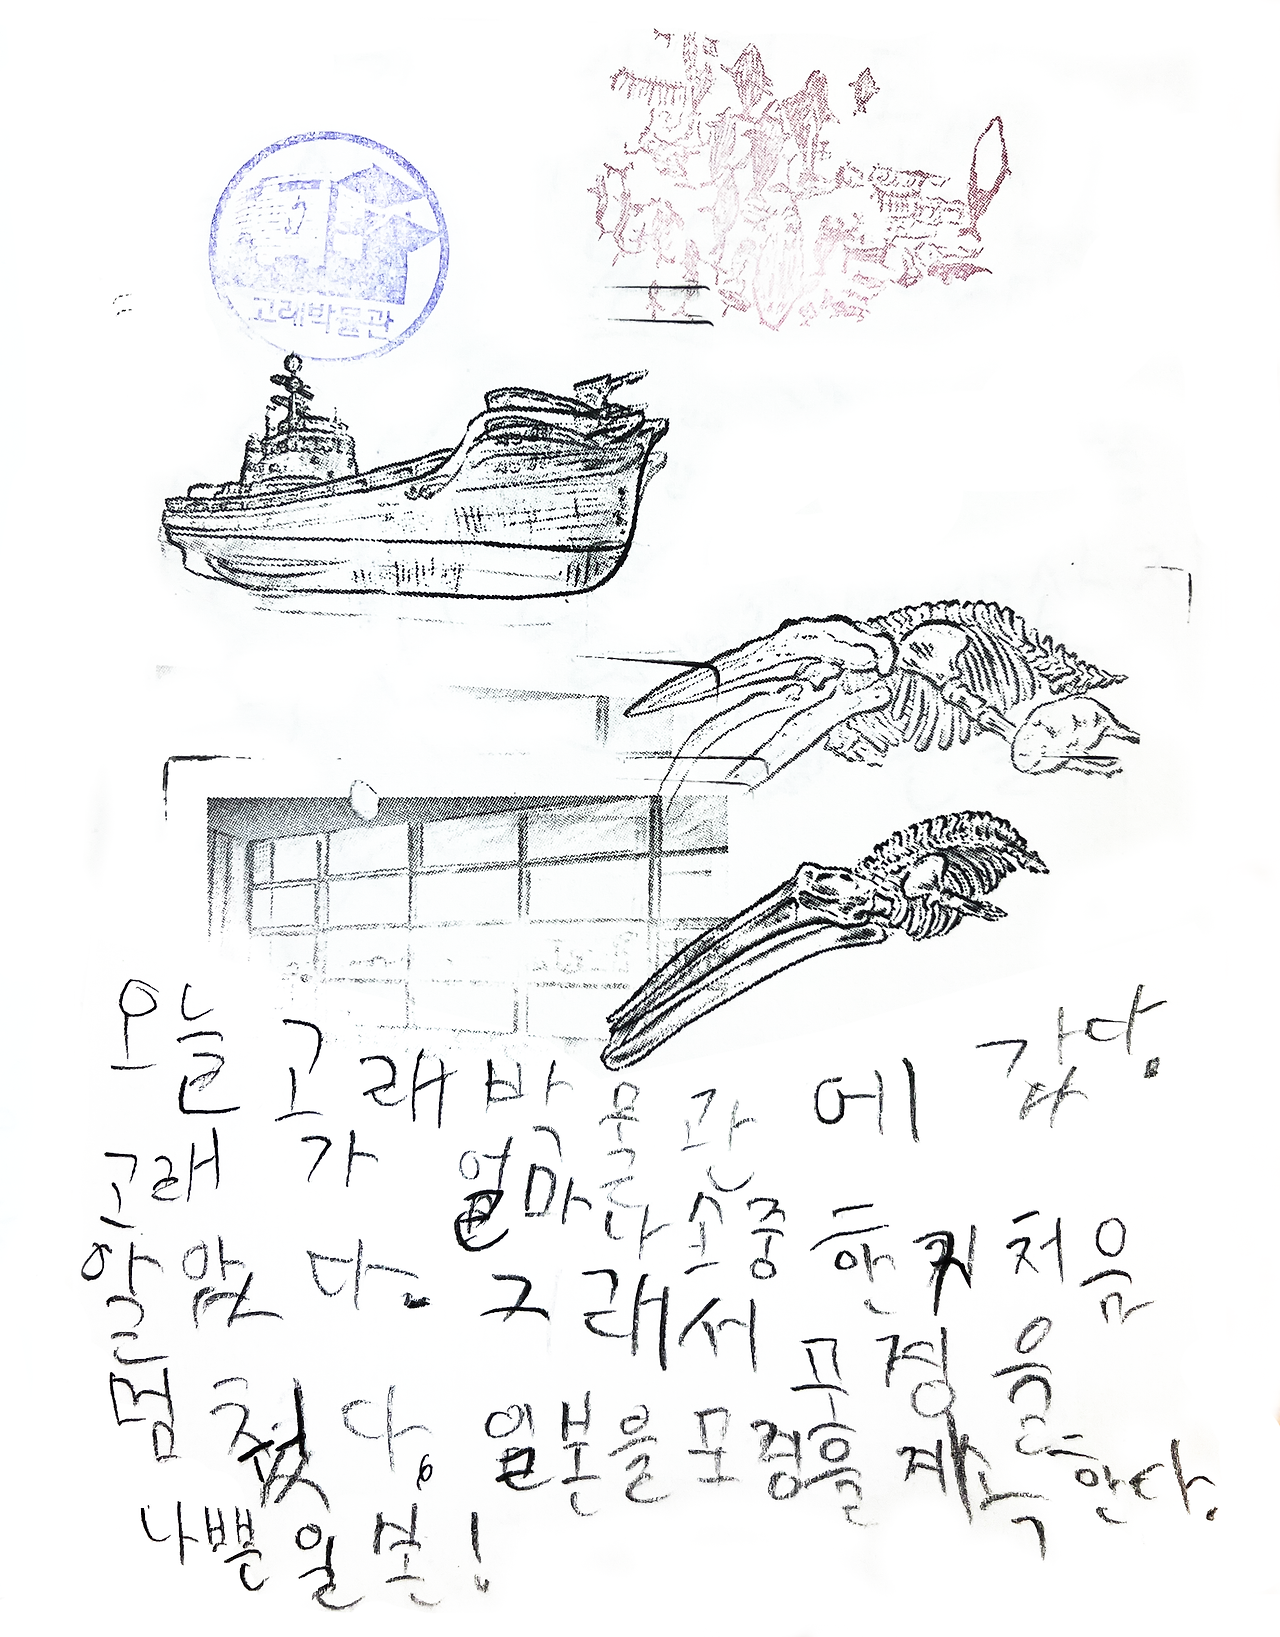 고래박물관
오늘 고래 박물관에 갔다.
고래가 얼마나 소중한지 처음
알았다. 그래서 포경을
멈췄다. 일본을 포경을 계속한다.
나쁜일본!